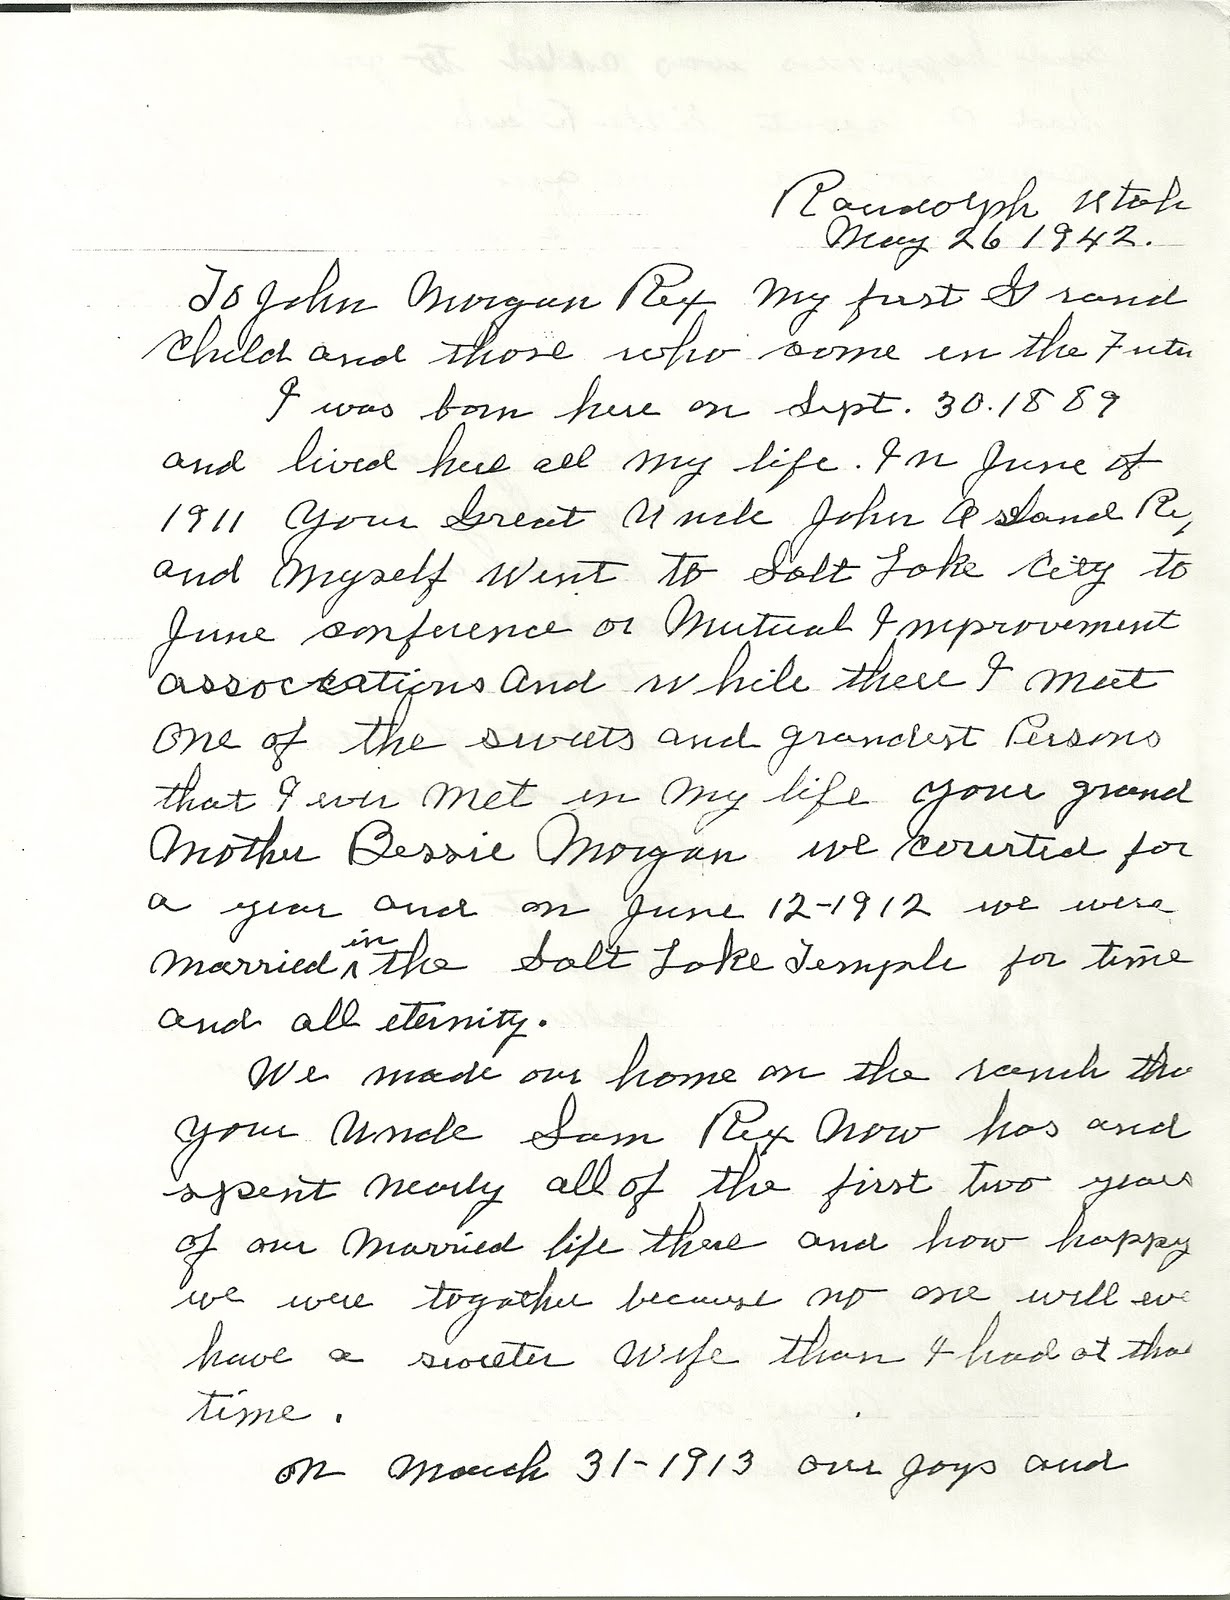 Randolph Utah
May 26 1942.
To John Morgan Rex My first Grand
Child and those who come in the Futu
I was born here on Sept. 30. 1889
and lived here all my life. In June of
1911 Your Great Uncle John Osland Re
and Myself Went to Salt Lake City to
June conference or Mutual Improvement
associations And while there I meet
one of the sweets and grandest Persons
that I ever Met in My life your grand
Mother Bessie Morgan we courted for
a year and on June 12-1912 we were
Married in the Salt Lake Temple for time
and all eternity.
We made our home on the ranch tha
your Uncle Sam Rex Now has and
spent Nearly all of the first two years
of our Married life there and how happy
we were togather because no one will eve
have a sweeter Wife than I had at tha
time.
on March 31-1913 our joys and